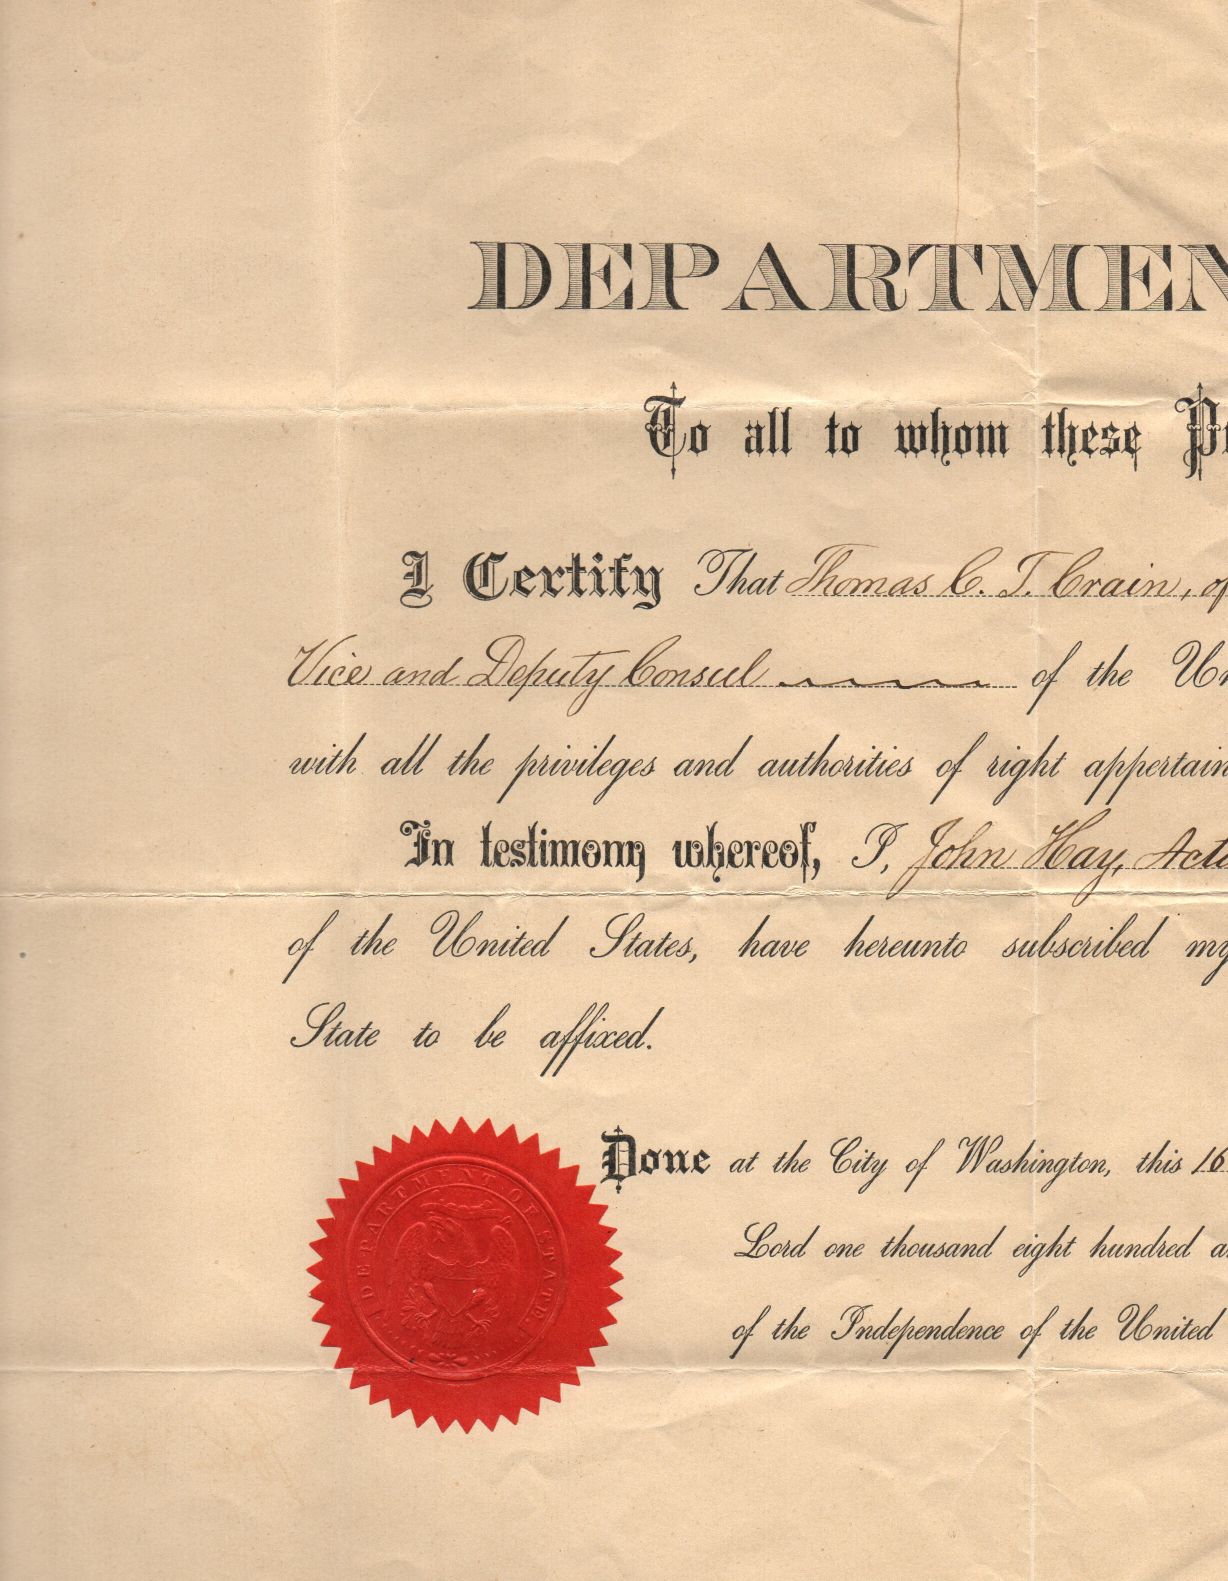 DEPARTMEN
To all to whom these Pr
I Certify That Thomas C. T. Crain, of
Vice and Deputy Consul of the Un
with all the privileges and authorities of right appertain
In testimony whereof, I, John Hay, Acti
of the United States, have hereunto subscribed my
State to be affixed.
Done at the City of Washington, this 16
Lord one thousand eight hundred a
of the Independence of the United
DEPARTMENT OF STATE.